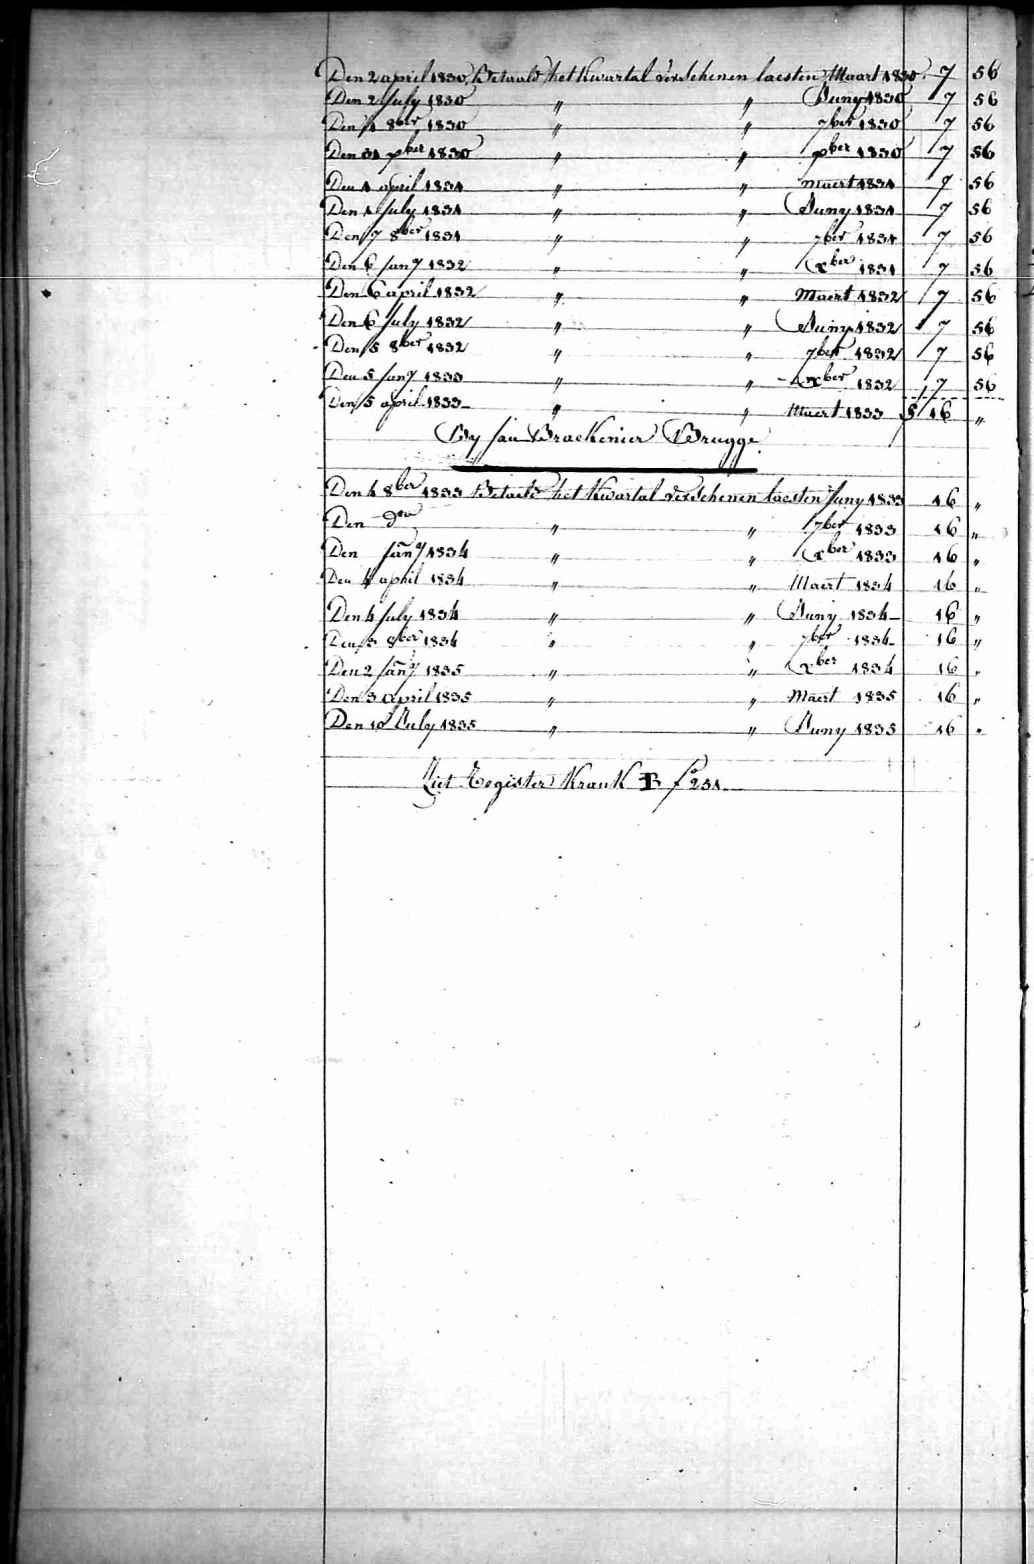 Den 2 april 1830 Betaald het Kwartal verschenen laesten Maart 1830. 7 56
Den 2 July 1830 " " Juny 1830 7 56
Den 1 8ber 1830 " " 7ber 1830 7 56
Den 31 xber 1830 " " xber 1830 7 56
Den 1 april 1831 " " maert 1831 7 56
Den 1 July 1831 " " Juny 1831 7 56
Den 7 8ber 1831 " " 7ber 1831 7 56
Den 6 Jany 1832 " " xber 1831 7 56
Den 6 april 1832 " " Maert 1832 7 56
Den 6 July 1832 " " Juny 1832 7 56
Den 5 8ber 1832 " " 7ber 1832 7 56
Den 5 Jany 1833 " " xber 1832 7 56
Den 5 april 1833 " " Maert 1833 16 "
By Jan Brackenier Brugge
Den 4 8ber 1833 Betaeld het Kwartal verschenen laesten Juny 1833 16 "
Den do " " 7ber 1833 16 "
Den Jany 1834 " " xber 1833 16 "
Den 4 april 1834 " " Maert 1834 16 "
Den 4 July 1834 " " Juny 1834 16 "
Den 3 8ber 1834 " " 7ber 1834 16 "
Den 2 Jany 1835 " " xber 1834 16 "
Den 3 april 1835 " " Maert 1835 16 "
Den 10 July 1835 " " Juny 1835 16 "
Ziet Register Krank B fo 231